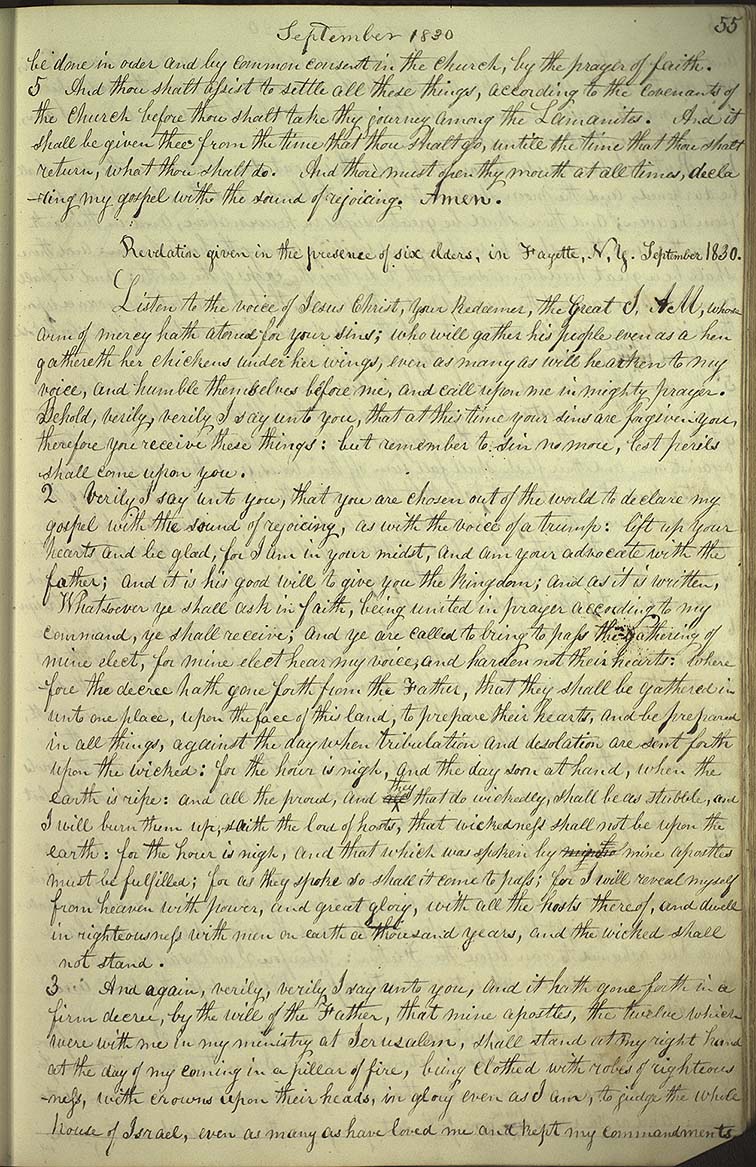 55
September 1830
be done in order and by common consent in the church, by the prayer of faith.
5 And thou shalt assist to settle all these things, according to the covenants of
the church before thou shalt take thy journey among the Lamanites. And it
shall be given thee from the time that thou shalt go, untill the time that thou shalt
return, what thou shalt do. And thou must open thy mouth at all times, decla
-ring my gospel with the sound of rejoicing. Amen.
Revelation given in the presence of six elders, in Fayette, N, Y. September 1830.
Listen to the voice of Jesus Christ, your Redeemer, the Great I, AM, whose
arm of mercy hath atoned for your sins; who will gather his people even as a hen
gathereth her chickens under her wings, even as many as will hearken to my
voice, and humble themselves before me, and call upon me in mighty prayer.
Behold, verily, verily I say unto you, that at this time your sins are forgiven you,
therefore you receive these things: but remember to sin no more, lest perils
shall come upon you.
2 Verily I say unto you, that you are chosen out of the world to declare my
gospel with the sound of rejoicing, as with the voice of a trump: lift up your
hearts and be glad, for I am in your midst, and am your advocate with the
father; and it is his good will to give you the kingdom; and as it is written,
Whatsoever ye shall ask in faith, being united in prayer according to my
command, ye shall receive; and ye are called to bring to pass the gathering of
mine elect, for mine elect hear my voice, and harden not their hearts: where
-fore the decree hath gone forth from the Father, that they shall be gathered in
unto one place, upon the face of this land, to prepare their hearts, and be prepared
in all things, against the day when tribulation and desolation are sent forth
upon the wicked: for the hour is nigh, and the day soon at hand, when the
earth is ripe: and all the proud, and they that do wickedly, shall be as stubble, and
I will burn them up, saith the lord of hosts, that wickedness shall not be upon the
earth: for the hour is nigh, and that which was spoken by mine apostles
must be fulfilled; for as they spoke so shall it come to pass; for I will reveal myself
from heaven with power, and great glory, with all the hosts thereof, and dwell
in righteousness with men on earth a thousand years, and the wicked shall
not stand.
3 And again, verily, verily I say unto you, and it hath gone forth in a
firm decree, by the will of the Father, that mine apostles, the twelve which
were with me in my ministry at Jerusalem, shall stand at my right hand
at the day of my coming in a pillar of fire, being clothed with robes of righteous
-ness, with crowns upon their heads, in glory even as I am, to judge the whole
house of Israel, even as many as have loved me and kept my commandments